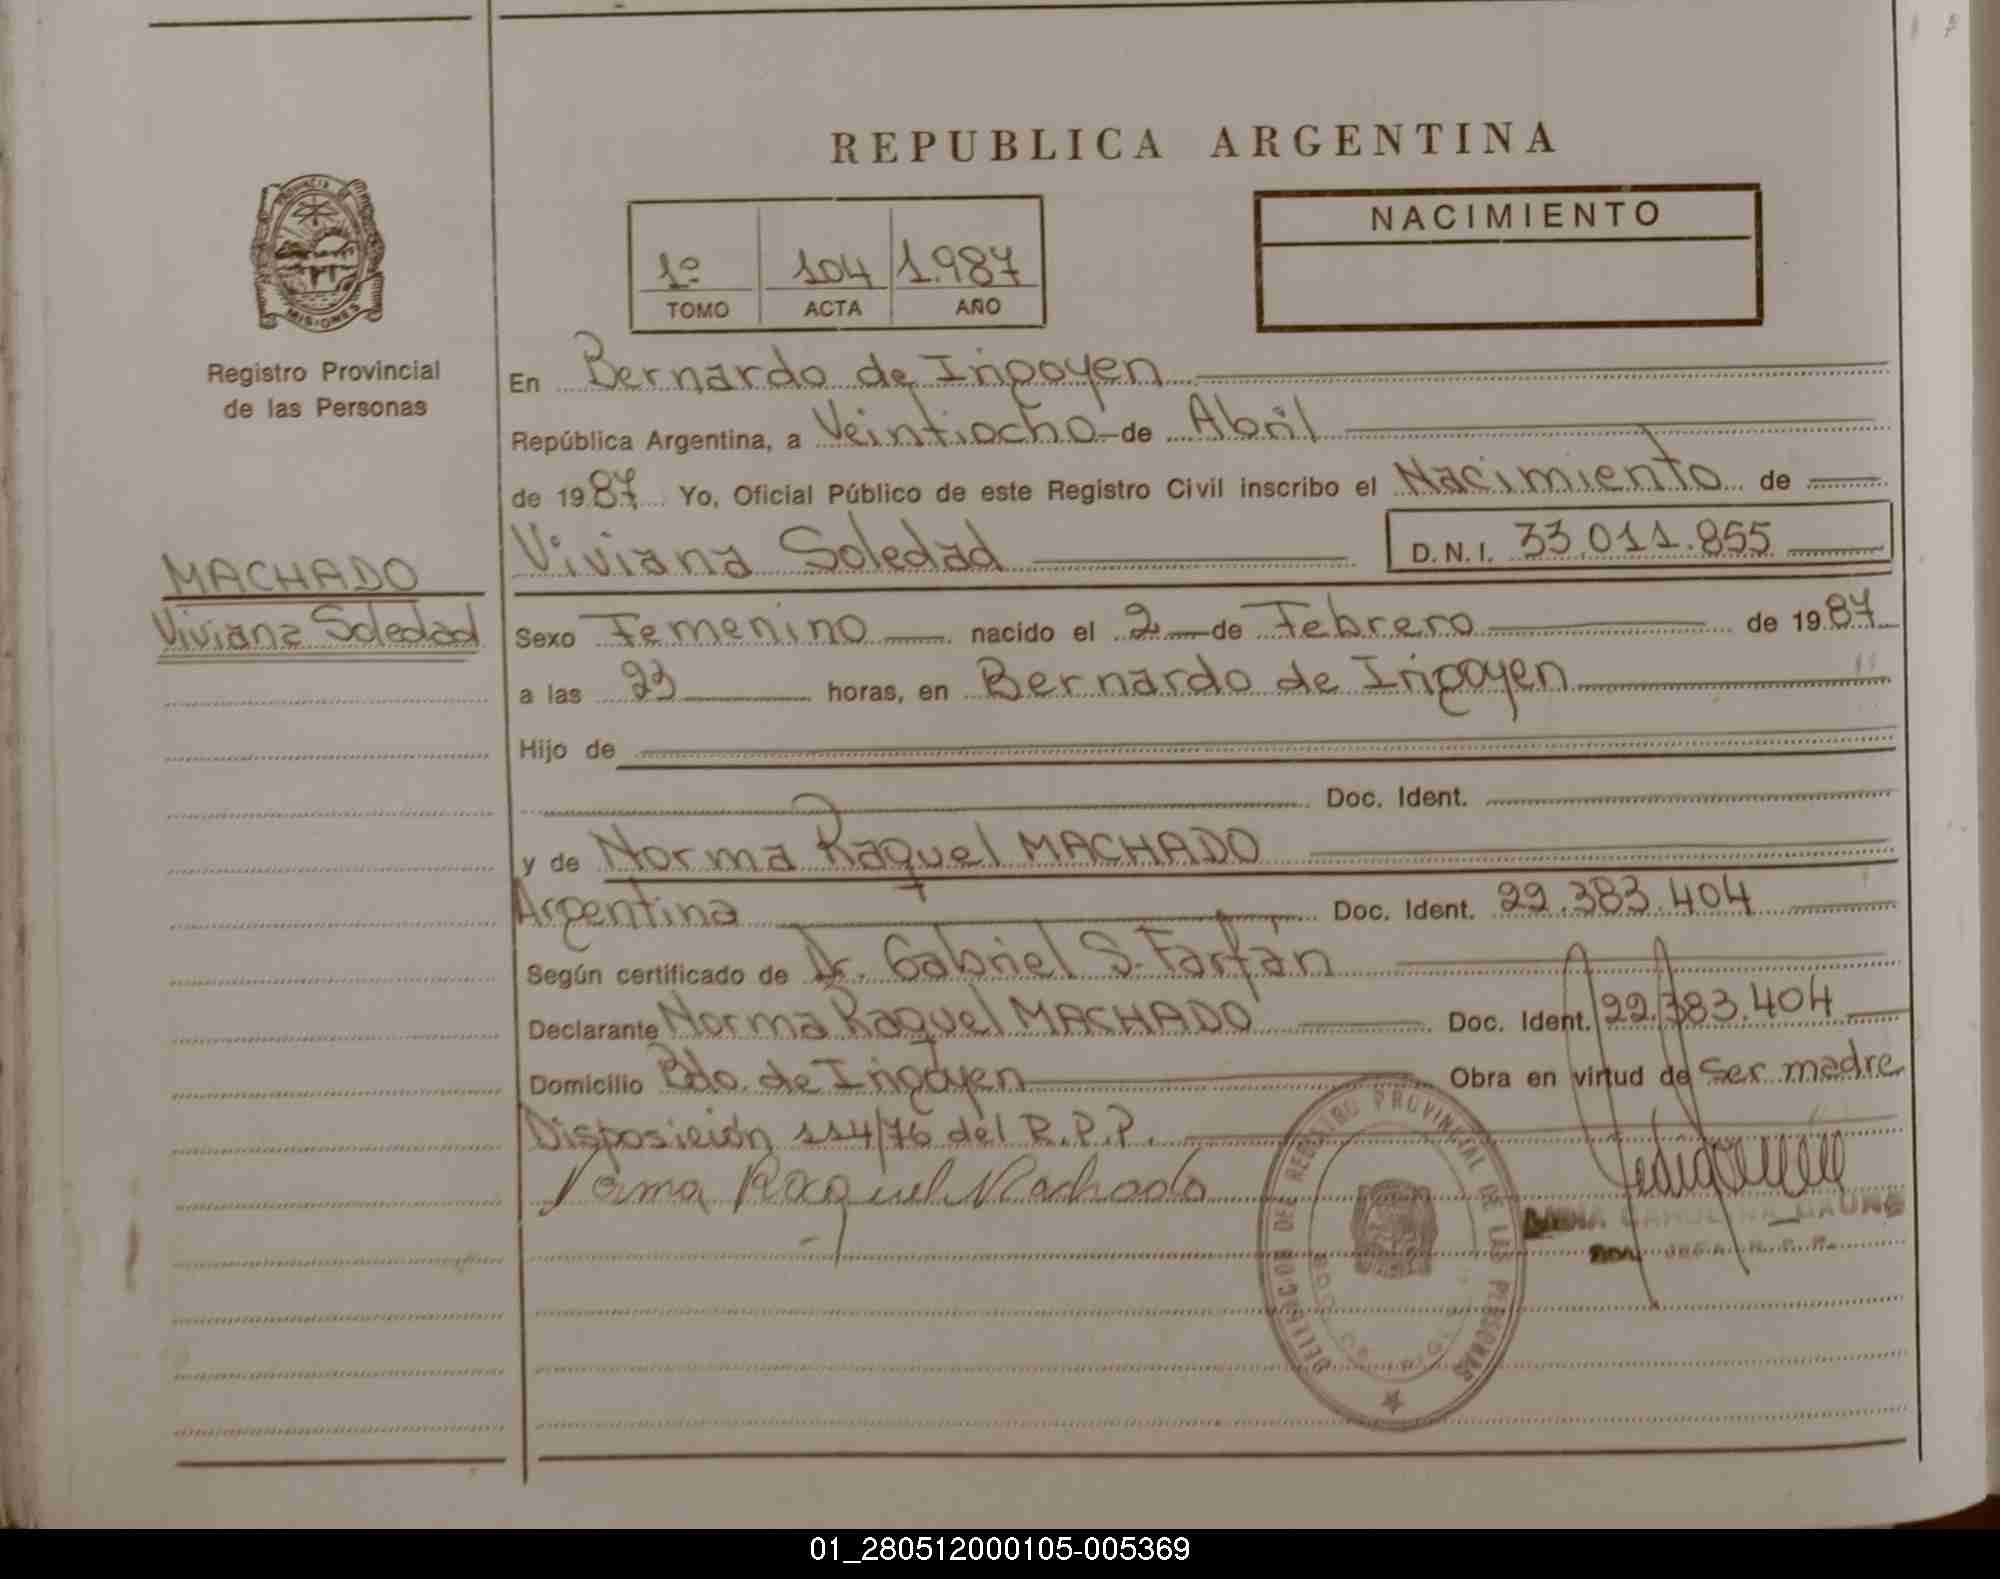 REPUBLICA ARGENTINA
PROVINCIA DE
MISIONES
Registro Provincial
de las Personas
1º 104 1.987
TOMO ACTA AÑO
NACIMIENTO
MACHADO
Viviana Soledad
En Bernardo de Irigoyen
República Argentina, a Veintiocho de Abril
de 1987 Yo, Oficial Público de este Registro Civil inscribo el Nacimiento de
Viviana Soledad D.N.I. 33.011.855
Sexo Femenino nacido el 2 de Febrero de 1987
a las 23 horas, en Bernardo de Irigoyen
Hijo de
Doc. Ident.
y de Norma Raquel MACHADO
Argentina Doc. Ident. 22.383.404
Según certificado de Dr. Gabriel S. Farfán
Declarante Norma Raquel MACHADO Doc. Ident. 22.383.404
Domicilio Bdo. de Irigoyen Obra en virtud de Ser madre
Disposición 114/76 del R.P.P.
Norma Raquel Machado
DELEGACION DEL REGISTRO PROVINCIAL DE LAS PERSONAS
01_280512000105-005369